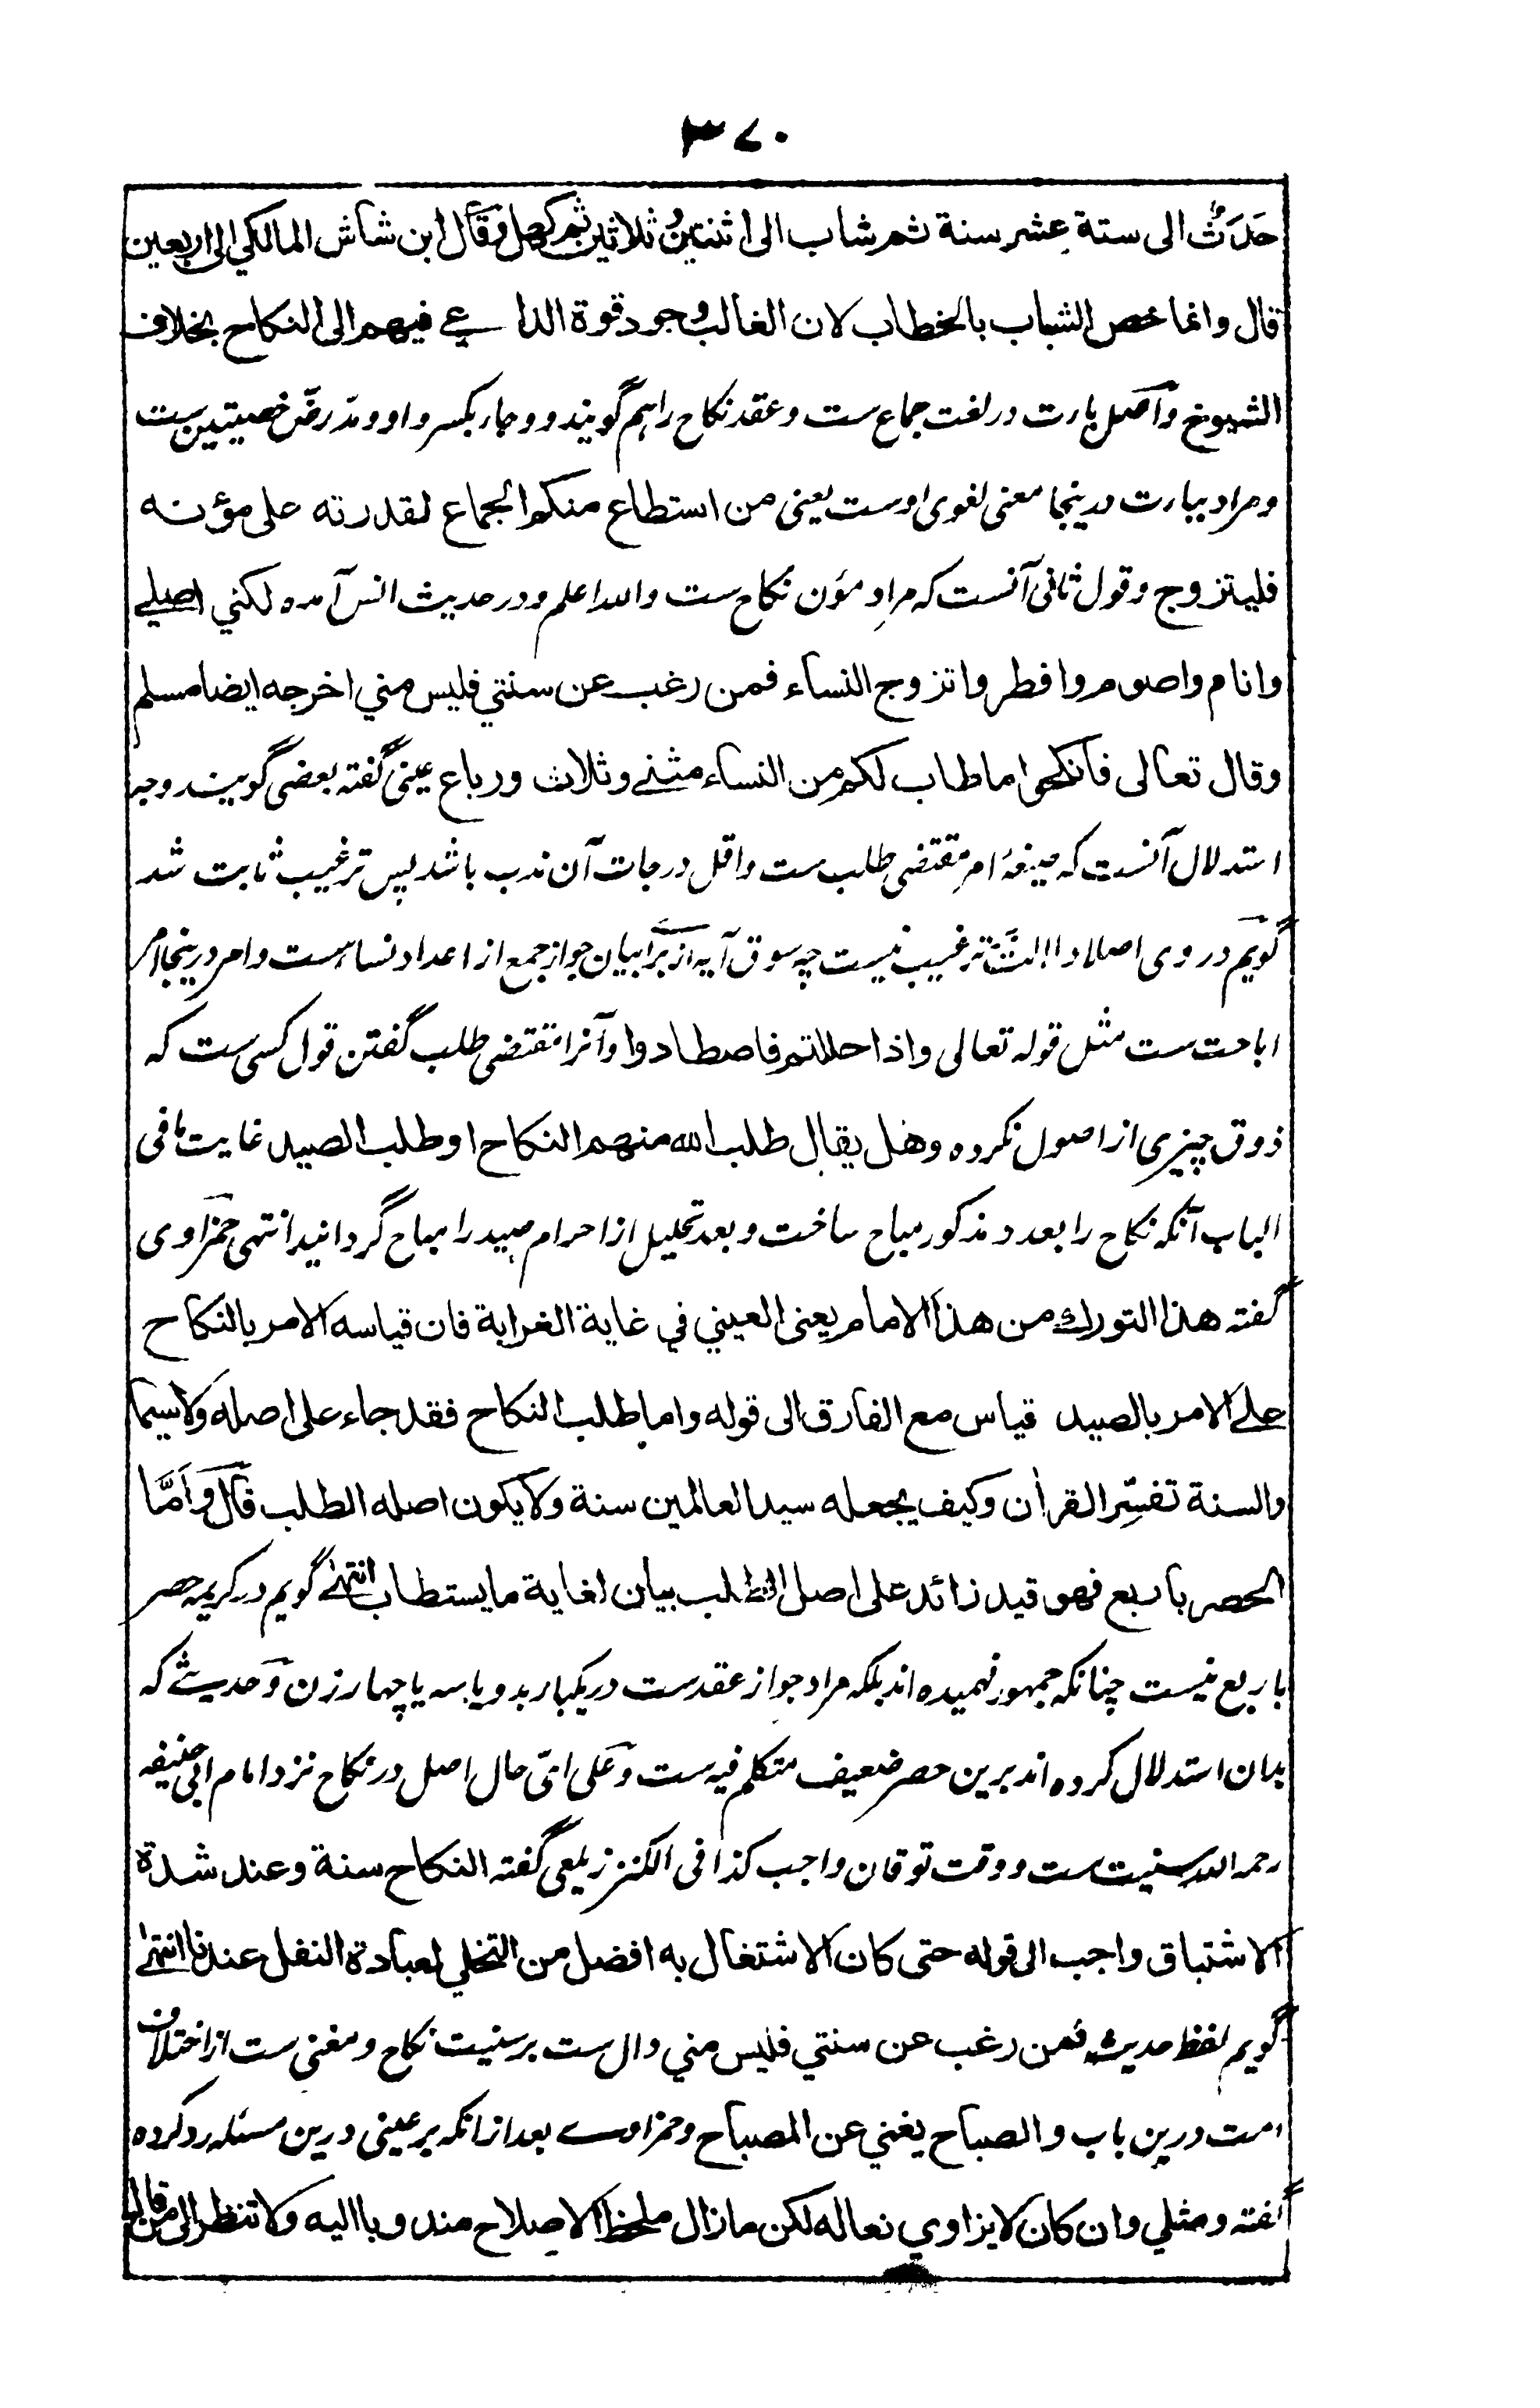 ۳۷۰
حَدَثٌ الی ستة عشر سنة ثم شاب الی اثنتین و ثلاثین ثم کهل و قال ابن شاش المالکي الی اربعین
قال وانما خص الشباب بالخطاب لان الغالب وجود قوة الداعي فيهم الی النکاح بخلاف
الشیوخ و اصل بارت در لغت جماع ست و عقد نکاح را هم گویند و وجاء بکسر واو و مد رض خصیتین ست
و مراد ببارت درینجا معنی لغوی اوست یعنی من استطاع منکم الجماع لقدرته علی مؤنه
فلیتزوج و قول ثانی آنست که مراد مؤن نکاح ست والله اعلم و در حدیث انس آمده لکني اصلي
وانام واصوم وافطر واتزوج النساء فمن رغب عن سنتي فلیس مني اخرجه ایضا مسلم
وقال تعالی فانکحوا ما طاب لکم من النساء مثنی وثلاث ورباع عینی گفته بعضی گویند وجه
استدلال آنست که صیغۀ امر مقتضی طلب ست و اقل درجات آن ندب باشد پس ترغیب ثابت شد
گویم در وی اصلا دلالت ترغیب نیست چه سوق آیه از برای بیان جواز جمع از اعداد نساء ست و امر درینجا امر
اباحت ست مثل قوله تعالی واذا حللتم فاصطادوا و آنرا مقتضی طلب گفتن قول کسی ست که
ذوق چیزی از اصول نکرده وهل یقال طلب الله منهم النکاح او طلب الصید غایت ما فی
الباب آنکه نکاح را بعدد مذکور مباح ساخت و بعد تحلیل از احرام صید را مباح گردانید انتهی حمزاوی
گفته هذا التورك من هذا الامام یعنی العیني في غایة الغرابة فان قیاسه الامر بالنکاح
علی الامر بالصید قیاس مع الفارق الی قوله واما طلب النکاح فقد جاء علی اصله ولا سیما
والسنة تفسّر القرآن وکیف یجعله سید العالمین سنة ولا یکون اصله الطلب قال وامّا
الحصر باربع فهو قید زائد علی اصل الطلب بیان لغایة ما یستطاب انتهی گویم در کریمه حصر
باربع نیست چنانکه جمهور فهمیده اند بلکه مراد جواز عقدست در یکبار بدو یا سه یا چهار زن و حدیثی که
بدان استدلال کرده اند برین حصر ضعیف متکلم فیه ست و علی ایّ حال اصل در نکاح نزد امام ابی حنیفه
رحمه الله سنیت ست و وقت توقان واجب کذا فی الکنز زیلعی گفته النکاح سنة وعند شدة
الاشتیاق واجب الی قوله حتی کان الاشتغال به افضل من التخلي لعبادة النفل عندنا انتهی
گویم لفظ حدیث فمن رغب عن سنتي فلیس مني دال ست بر سنیت نکاح و مغنی ست از اختلاف
امت درین باب والصباح یغني عن المصباح و حمزاوی بعد ازانکه بر عینی درین مسئله رد کرده
گفته ومثلي وان کان لا یزاوي نعاله لکن ما زال ملحظ الاصلاح مندوبا الیه ولا تنظر الی من قال